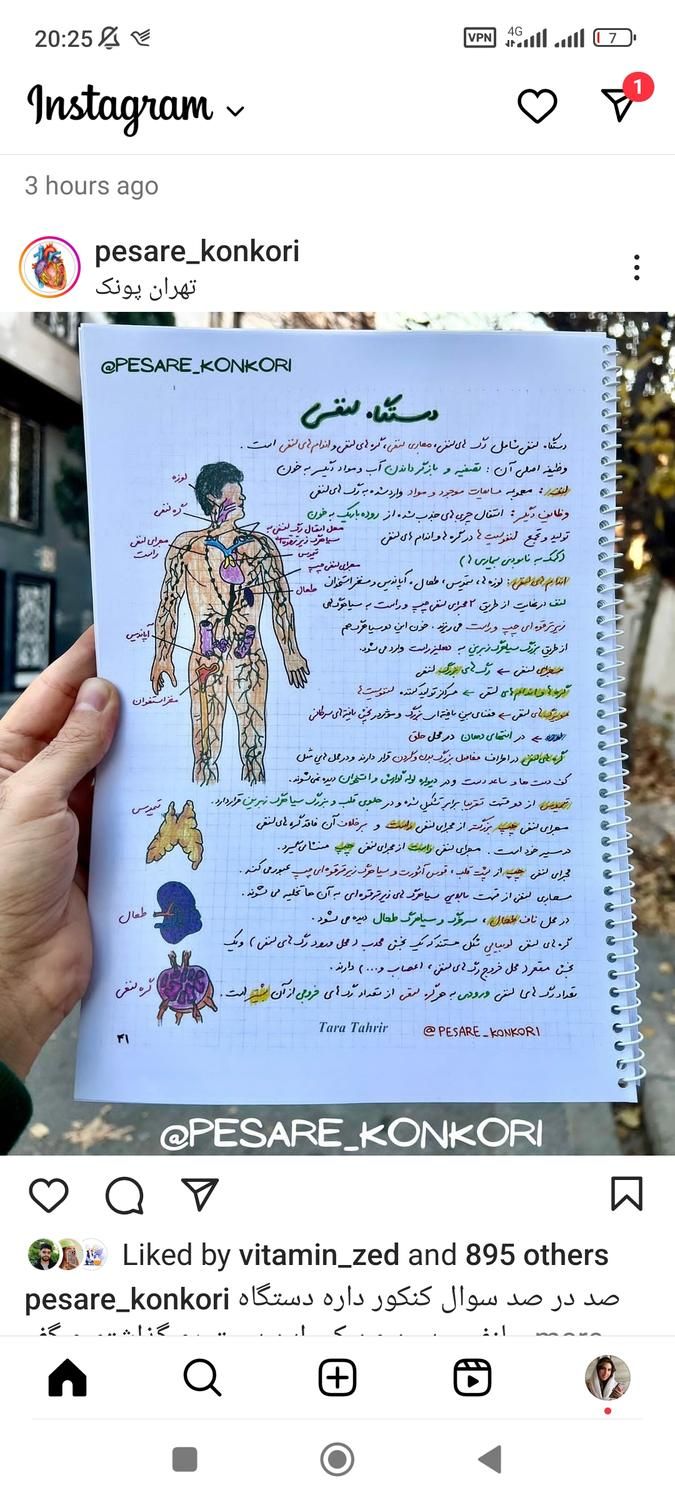 20:25
VPN 4G 7
Instagram
1
3 hours ago
pesare_konkori
تهران پونک
@PESARE_KONKORI
دستگاه لنفی
دستگاه لنفی شامل رگ های لنفی، مجاری لنفی، گره های لنفی و اندام های لنفی است .
وظیفه اصلی آن : تصفیه و بازگرداندن آب و مواد دیگر به خون
لنف : مجموعه مایعات موجود و مواد وارد شده به رگ های لنفی
وظایف دیگر : انتقال چربی های جذب شده از روده باریک به خون
تولید و تجمع لنفوسیت ها در گره ها و اندام های لنفی
(کمک به نابودی بیماری ها)
اندام های لنفی : لوزه ها، تیموس، طحال، آپاندیس و مغز استخوان
لنف در نهایت از طریق ۲ مجرای لنفی چپ و راست به سیاهرگ های
زیرترقوه ای چپ و راست می ریزد . خون این دو سیاهرگ هم
از طریق بزرگ سیاهرگ زبرین به دهلیز راست وارد می شود.
مجرای لنفی ← رگ های بزرگ لنفی
گره ها و اندام های لنفی ← مرکز تولید کننده لنفوسیت ها
مویرگ های لنفی ← فضای بین یاخته ای بزرگ و موثر در پخش یاخته های سرطانی
لوزه ← در انتهای دهان در محل حلق
گره های لنفی در اطراف مفاصل بزرگ بدن و گردن قرار دارند و در محل هایی مثل
کف دست ها و ساعد دست و در دیواره لوله گوارش و استخوان دیده نمی شوند.
تیموس از دو قسمت تقریبا برابر تشکیل شده و در جلوی قلب و بزرگ سیاهرگ زبرین قرار دارد.
مجرای لنفی چپ بزرگتر از مجرای لنفی راست و برخلاف آن فاقد گره های لنفی
در مسیر خود است . مجرای لنفی راست از مجرای لنفی چپ منشأ می گیرد.
مجرای لنفی چپ از پشت قلب، قوس آئورت و سیاهرگ زیرترقوه ای چپ عبور می کند .
مجاری لنفی از قسمت بالایی سیاهرگ های زیرترقوه ای به آن ها تخلیه می شوند .
در محل ناف طحال ، سرخرگ و سیاهرگ طحال دیده می شود .
گره های لنفی لوبیایی شکل هستند که یک بخش محدب ( محل ورود رگ های لنفی ) و یک
بخش مقعر ( محل خروج رگ های لنفی ، اعصاب و...) دارند .
تعداد رگ های لنفی ورودی به هر گره لنفی از تعداد رگ های خروجی از آن بیشتر است .
لوزه
گره لنفی
مجرای لنفی راست
محل اتصال رگ لنفی به سیاهرگ زیرترقوه ای
تیموس
مجرای لنفی چپ
طحال
آپاندیس
مغز استخوان
تیموس
طحال
گره لنفی
۴۱
Tara Tahrir
@PESARE_KONKORI
@PESARE_KONKORI
Liked by vitamin_zed and 895 others
pesare_konkori صد در صد سوال کنکور داره دستگاه